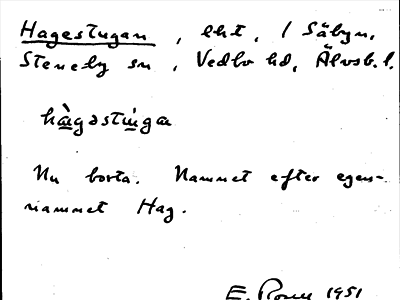 Hagestugan, lht, / Säbyn,
Steneby sn, Vedbo hd, Älvsb. l.
hàgəstu̇ga
Nu borta. Namnet efter egen-
namnet Hag.
E. 1951